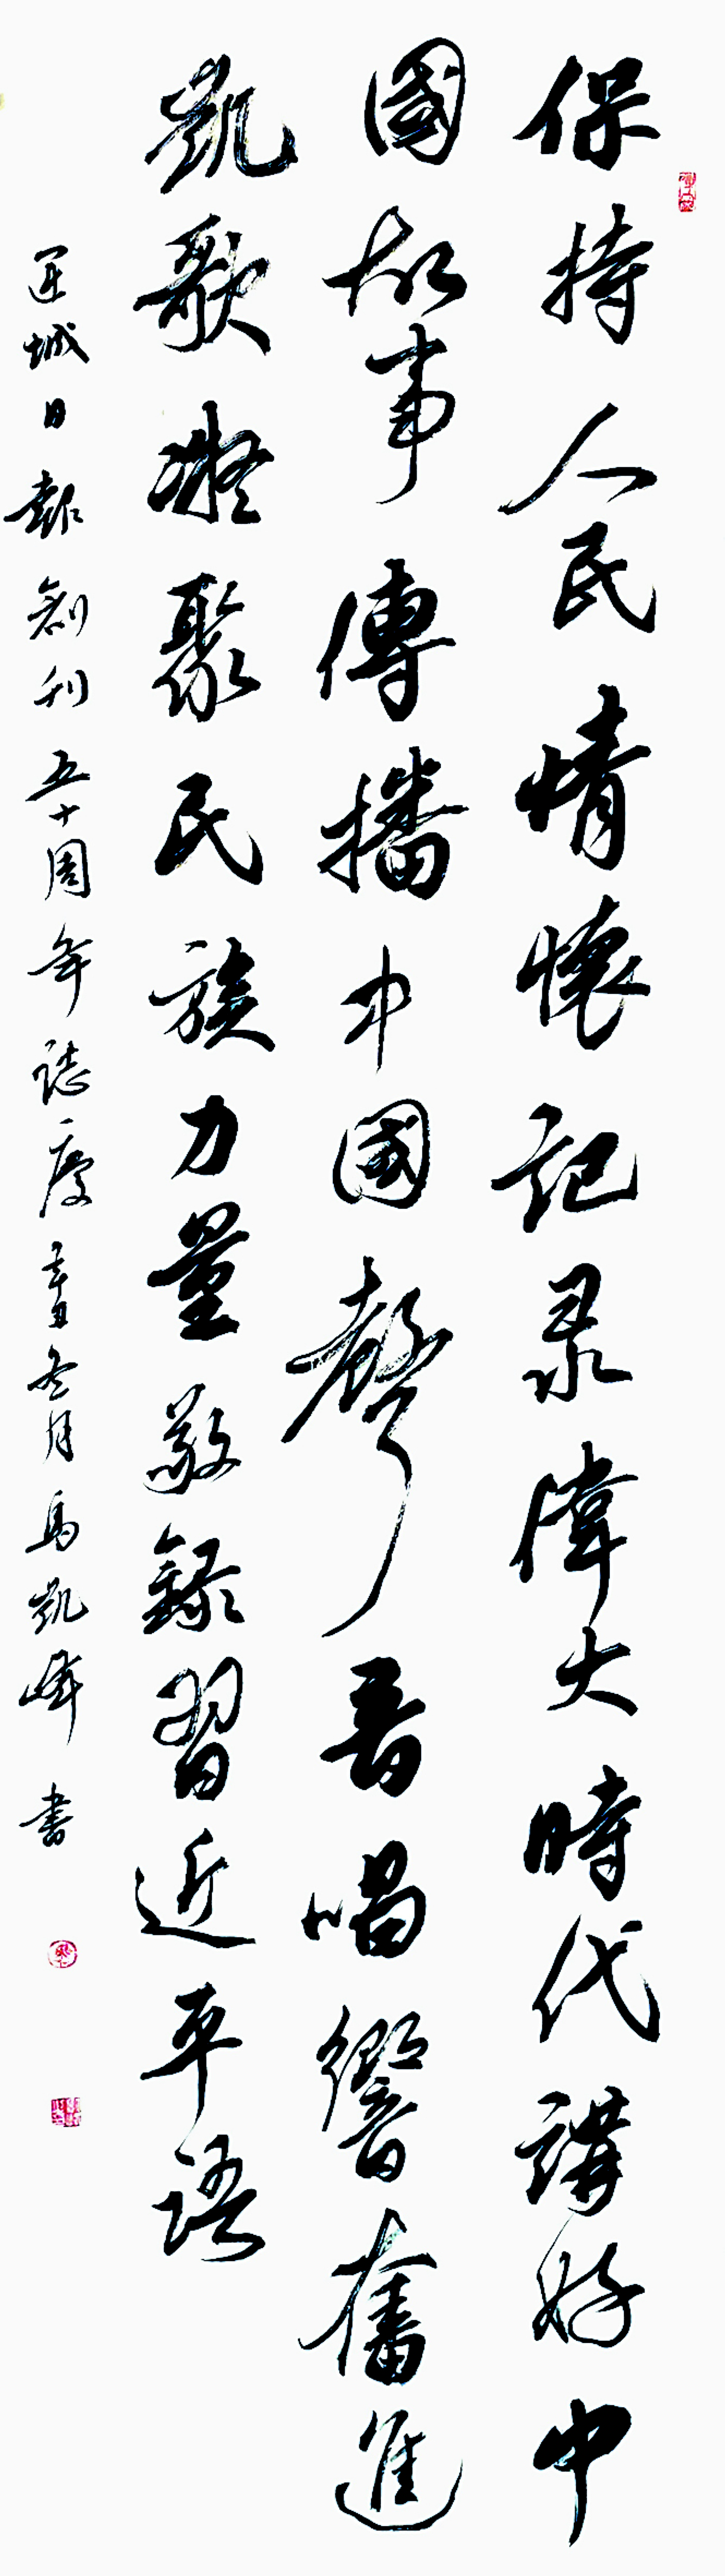 保持人民情懷記录偉大時代講好中
國故事傳播中國聲音唱響奮進
凱歌凝聚民族力量敬錄習近平語
运城日報創刊五十周年誌慶辛丑冬月馬凱峰书